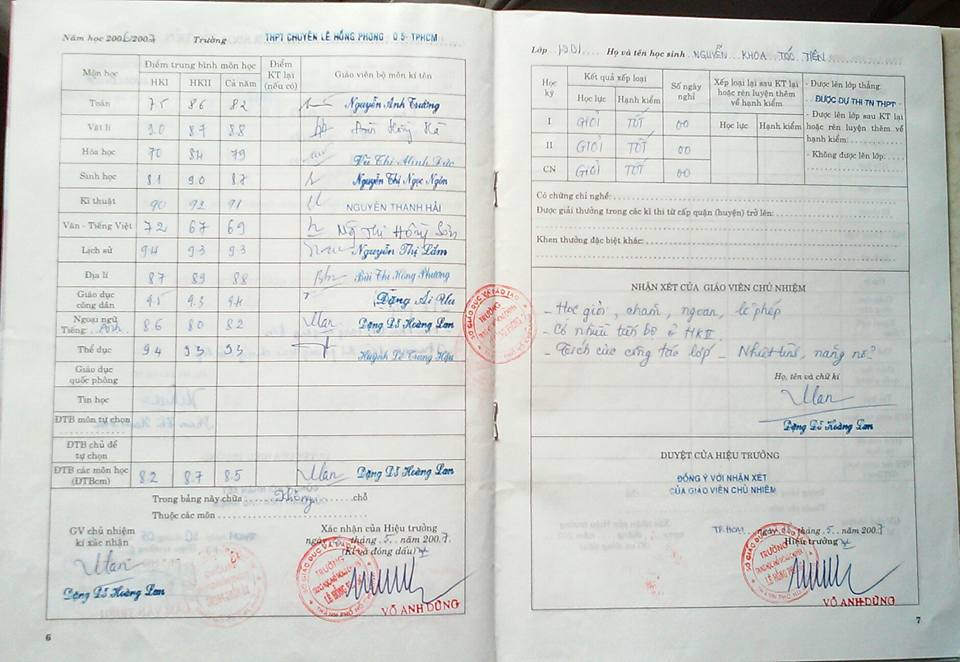 Năm học 2006/2007 Trường THPT CHUYÊN LÊ HỒNG PHONG Q5-TPHCM
Môn học Điểm trung bình môn học Điểm KT lại (nếu có) Giáo viên bộ môn kí tên
HKI HKII Cả năm
Toán 7.5 8.6 8.2 Nguyễn Anh Trường
Vật lí 9.0 8.7 8.8
Hóa học 7.0 8.4 7.9 Vũ Thị Minh Đức
Sinh học 8.1 9.0 8.7 Nguyễn Thị Ngọc Ngôn
Kĩ thuật 9.0 9.2 9.1 NGUYỄN THANH HẢI
Văn - Tiếng Việt 7.2 6.7 6.9 Ng Thị Hồng Sơn
Lịch sử 9.4 9.3 9.3 Nguyễn Thị Lắm
Địa lí 8.7 8.9 8.8 Bùi Thị Hồng Phương
Giáo dục công dân 9.5 9.3 9.4 Đặng Ái
Ngoại ngữ
Tiếng: Anh 8.6 8.0 8.2 Đặng Đỗ Hoàng Lan
Thể dục 9.4 9.3 9.3 Huỳnh Lê Trung Hậu
Giáo dục quốc phòng
Tin học
ĐTB môn tự chọn
ĐTB chủ đề tự chọn
ĐTB các môn học (ĐTBcm) 8.2 8.7 8.5 Đặng Đỗ Hoàng Lan
Trong bảng này chữa Không chỗ
Thuộc các môn
GV chủ nhiệm
kí xác nhận
Đặng Đỗ Hoàng Lan
Xác nhận của Hiệu trưởng
ngày tháng 5 năm 2007
(Kí và đóng dấu)
VÕ ANH DŨNG
6
Lớp 10D1 Họ và tên học sinh NGUYỄN KHOA TÓC TIÊN
Học kỳ Kết quả xếp loại Số ngày nghỉ Xếp loại lại sau KT lại hoặc rèn luyện thêm về hạnh kiểm
Học lực Hạnh kiểm Học lực Hạnh kiểm
I GIỎI TỐT 00
II GIỎI TỐT 00
CN GIỎI TỐT 00
- Được lên lớp thẳng
ĐƯỢC DỰ THI TN THPT
- Được lên lớp sau KT lại
hoặc rèn luyện thêm về
hạnh kiểm:
- Không được lên lớp:
Có chứng chỉ nghề:
Được giải thưởng trong các kì thi từ cấp quận (huyện) trở lên:
Khen thưởng đặc biệt khác:
NHẬN XÉT CỦA GIÁO VIÊN CHỦ NHIỆM
- Học giỏi, chăm, ngoan, lễ phép
- Có nhiều tiến bộ ở HKII
- Tích cực công tác lớp - Nhiệt tình, năng nổ
Họ, tên và chữ kí
Đặng Đỗ Hoàng Lan
DUYỆT CỦA HIỆU TRƯỞNG
ĐỒNG Ý VỚI NHẬN XÉT
CỦA GIÁO VIÊN CHỦ NHIỆM
TP.HCM ngày tháng 5 năm 2007
Hiệu trưởng
VÕ ANH DŨNG
7